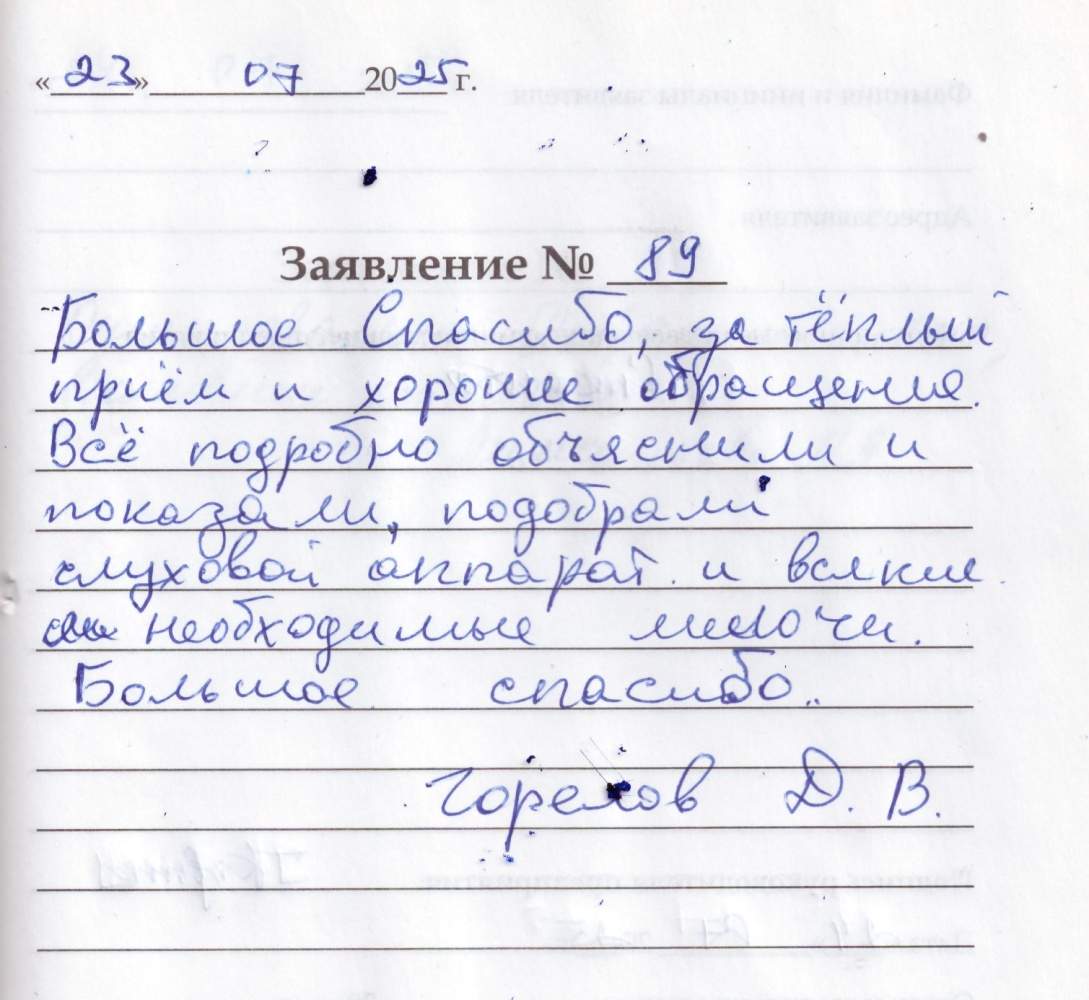 «23» 07 2025 г.
Заявление № 89
Большое Спасибо, за тёплый
приём и хорошие обращения.
Всё подробно объяснили и
показали, подобрали
слуховой аппарат и всякие
необходимые мелочи.
Большое спасибо..
Горелов Д. В.